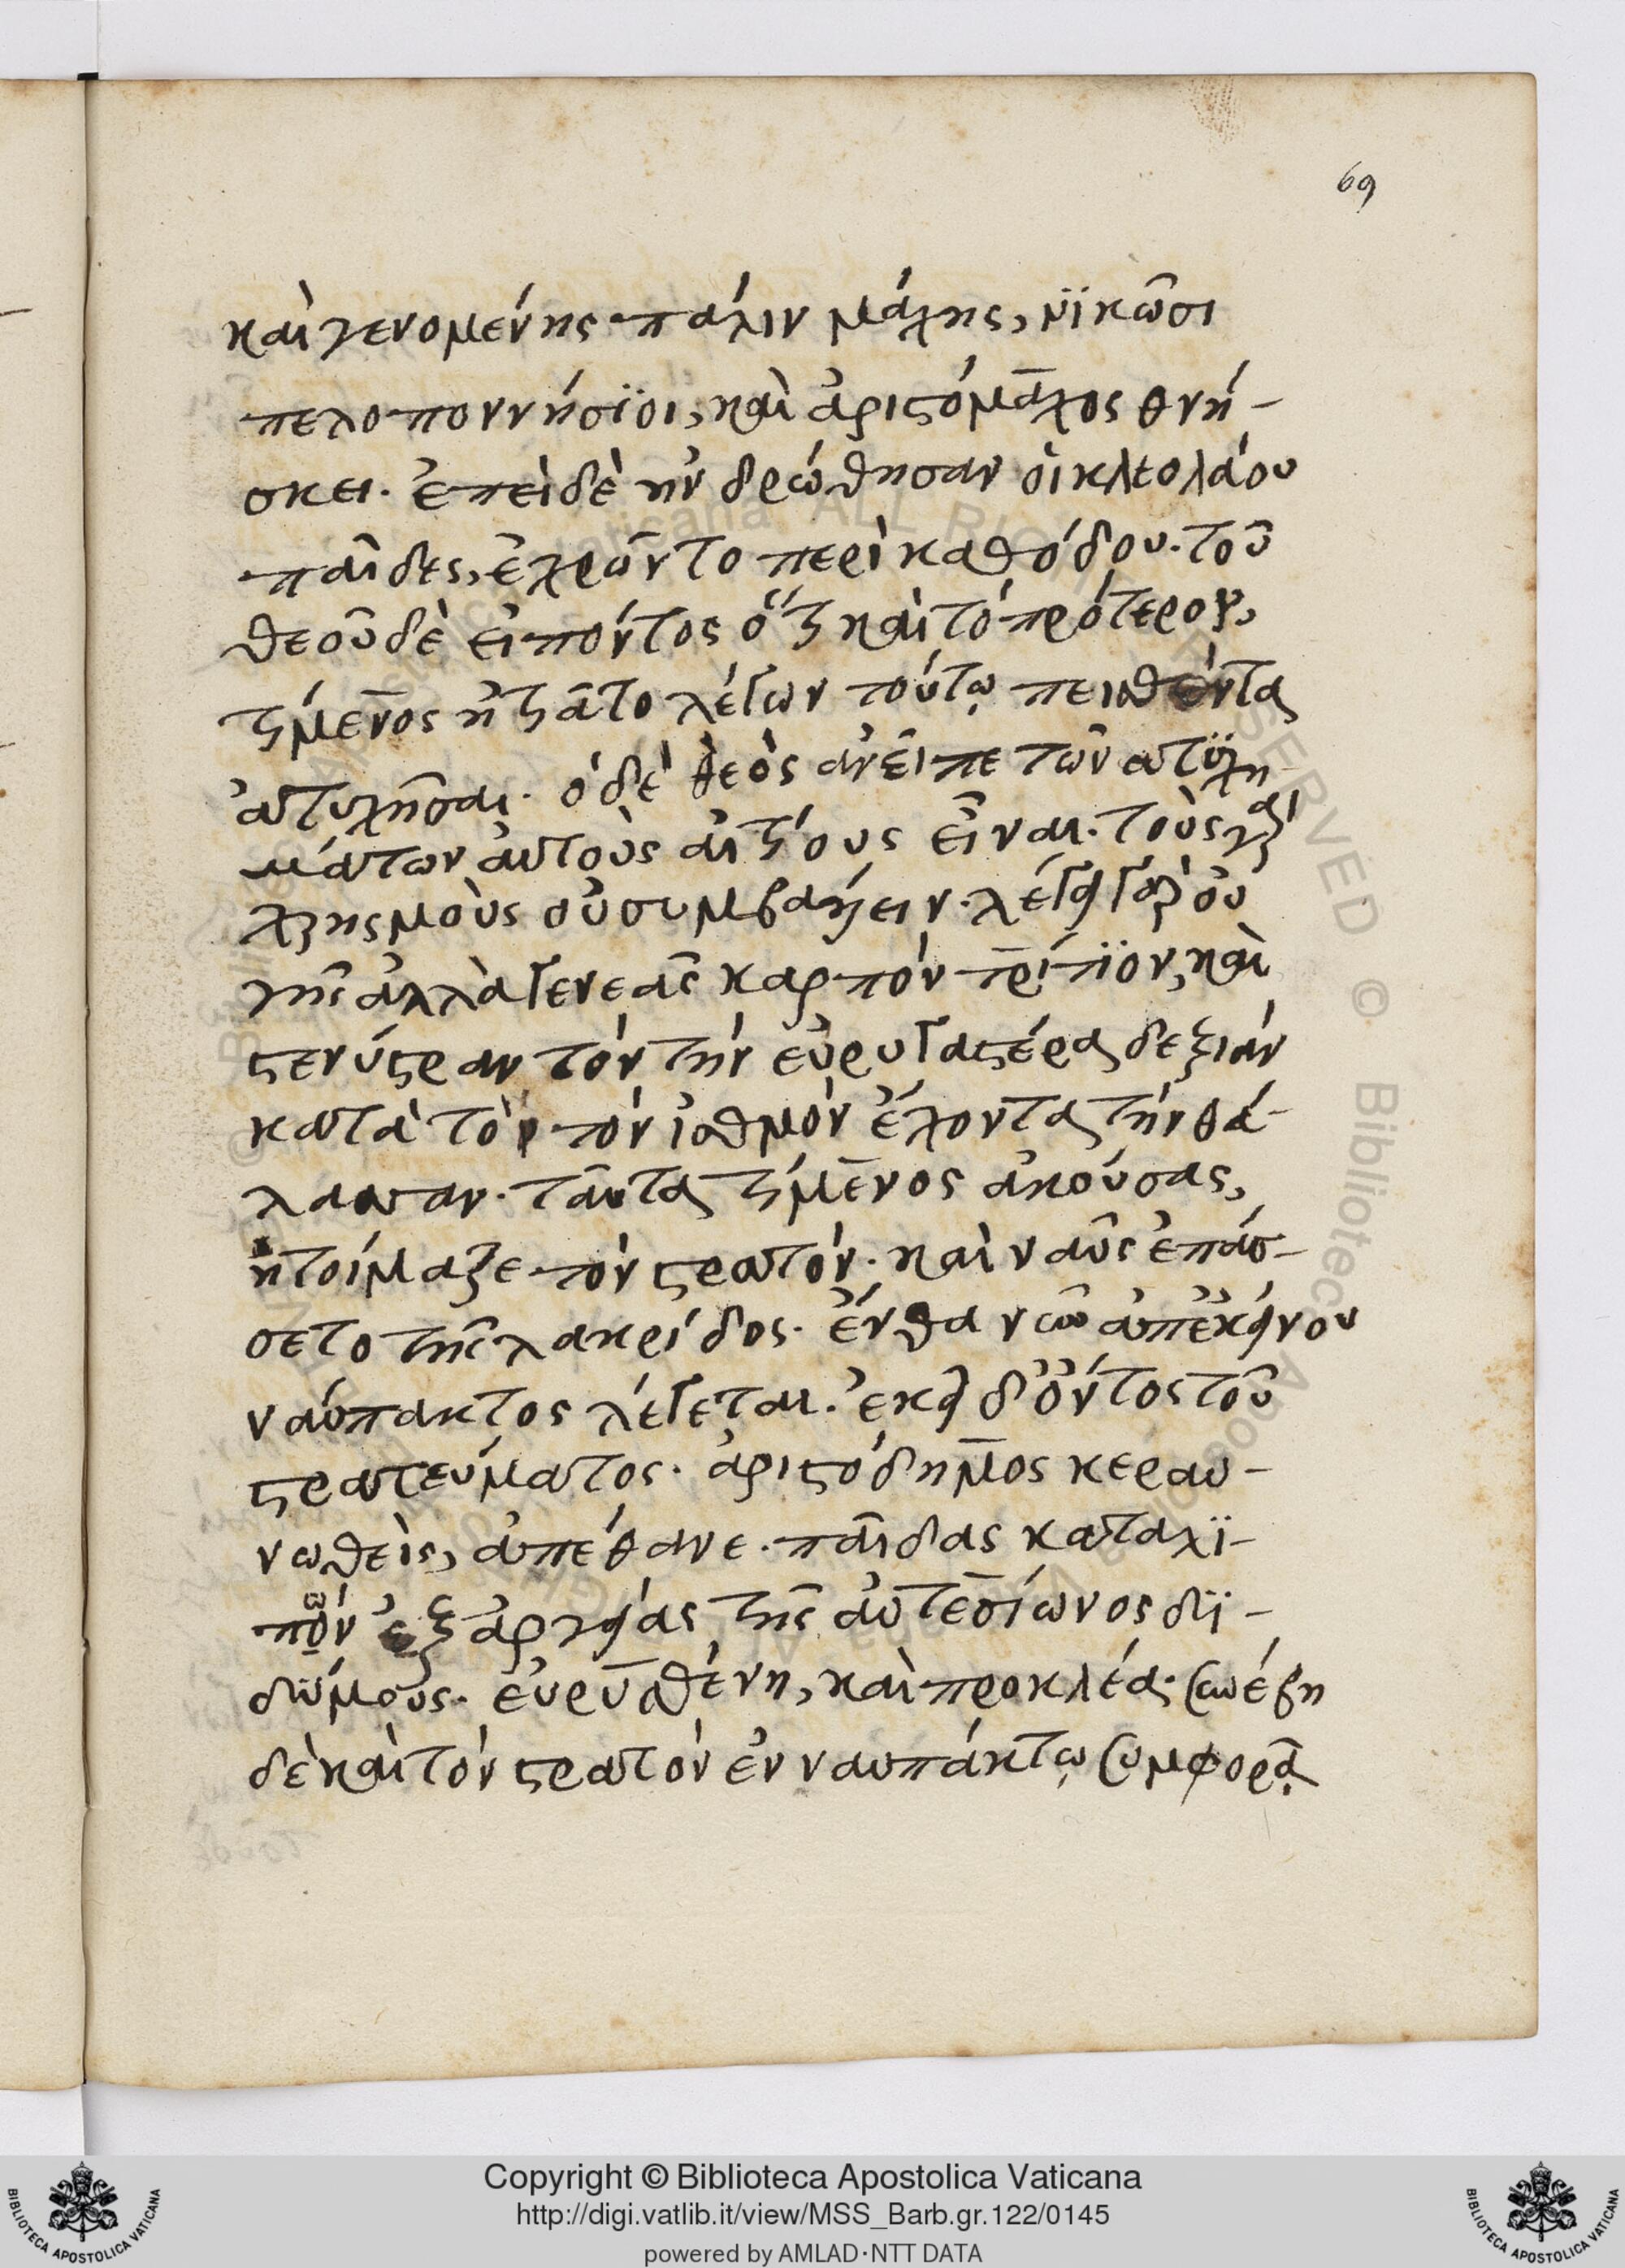 69
καὶ γενομένης πάλιν μάχης, νϊκῶσι
πελοποννήσϊοι, καὶ ἀριστόμαχος θνή-
σκει. ἐπεὶ δὲ ἠνδρώθησαν οἱ κλεολάου
παῖδες, ἐχρῶντο περὶ καθόδου. τοῦ
θεοῦ δὲ εἰπόντος ὅτι καὶ τὸ πρότερον,
τήμενος ἠτιᾶτο λέγων τούτῳ πεισθέντα
ἀτυχῆσαι. ὁ δὲ θεὸς ἀνεῖπε τῶν ἀτυχη
μάτων αὐτοὺς αἰτίους εἶναι. τοὺς γὰρ
χρησμοὺς οὐ συμβάλλειν. λέγειν γὰρ οὐ
γῆς ἀλλὰ γενεᾶς καρπὸν τρίτϊον, καὶ
στενύγραν τὸν τὴν εὐρυγαστέρα δεξιὰν
κατὰ τὸν τὸν ἰσθμὸν ἔχοντα τὴν θά-
λασσαν. ταῦτα τήμενος ἀκούσας,
ἡτοίμαζε τὸν στρατὸν. καὶ ναῦς ἐπάσ-
σετο τῆς λακρίδος. ἔνθα νῦν ἀπ' ἐκείνου
ναύπακτος λέγεται. ἐκεῖ δ' ὄντος τοῦ
στρατεύματος. ἀριστόδημος κεραυ-
νωθεὶς, ἀπέθανε. παῖδας καταλϊ-
πὼν ἐξ ἀργείας τῆς αὐτεσίωνος δϊ-
δύμους. εὐρυσθένη, καὶ προκλέα. συνέβη
δὲ καὶ τὸν στρατὸν ἐν ναυπάκτῳ συμφορᾷ
Copyright © Biblioteca Apostolica Vaticana
http://digi.vatlib.it/view/MSS_Barb.gr.122/0145
powered by AMLAD·NTT DATA